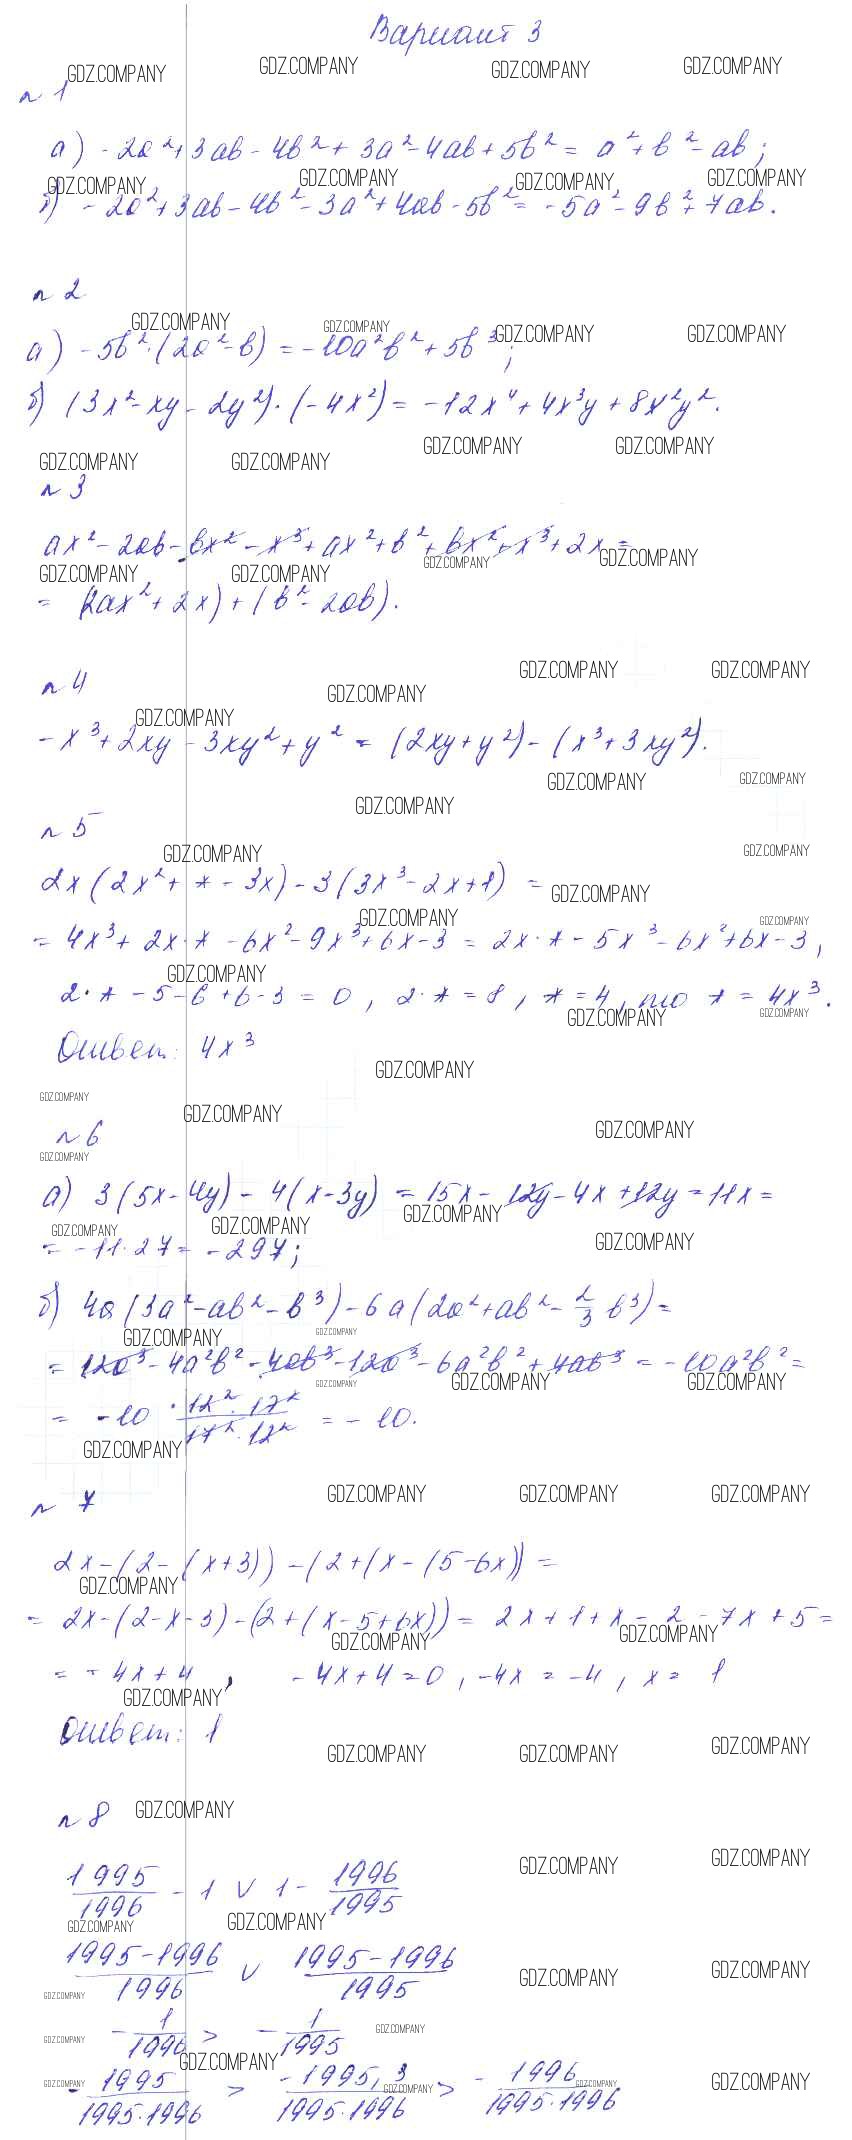 Вариант 3
GDZ.COMPANY GDZ.COMPANY GDZ.COMPANY GDZ.COMPANY
n 1
а) -2a²+3ab-4b²+3a²-4ab+5b² = a²+b²-ab;
GDZ.COMPANY GDZ.COMPANY GDZ.COMPANY GDZ.COMPANY
б) -2a²+3ab-4b²-3a²+4ab-5b² = -5a²-9b²+7ab.
n 2
GDZ.COMPANY GDZ.COMPANY GDZ.COMPANY GDZ.COMPANY
а) -5b²·(2a²-b) = -10a²b²+5b³;
б) (3x²-xy-2y²)·(-4x²) = -12x⁴+4x³y+8x²y².
GDZ.COMPANY GDZ.COMPANY GDZ.COMPANY GDZ.COMPANY
n 3
ax²-2ab-bx²-x³+ax²+b²+bx²+x³+2x =
GDZ.COMPANY GDZ.COMPANY GDZ.COMPANY GDZ.COMPANY
= (2ax²+2x)+(b²-2ab).
n 4
GDZ.COMPANY GDZ.COMPANY GDZ.COMPANY GDZ.COMPANY
-x³+2xy-3xy²+y² = (2xy+y²)-(x³+3xy²).
GDZ.COMPANY GDZ.COMPANY GDZ.COMPANY
n 5
GDZ.COMPANY GDZ.COMPANY
2x(2x²+*-3x)-3(3x³-2x+1) =
GDZ.COMPANY GDZ.COMPANY GDZ.COMPANY
= 4x³+2x·*-6x²-9x³+6x-3 = 2x·*-5x³-6x²+6x-3,
GDZ.COMPANY
2·*-5-6+6-3 = 0, 2·* = 8, * = 4, то * = 4x³.
GDZ.COMPANY GDZ.COMPANY
Ответ: 4x³
GDZ.COMPANY GDZ.COMPANY GDZ.COMPANY GDZ.COMPANY
n 6
GDZ.COMPANY
а) 3(5x-4y)-4(x-3y) = 15x-12y-4x+12y = 11x =
GDZ.COMPANY GDZ.COMPANY GDZ.COMPANY GDZ.COMPANY
= -11·27 = -297;
б) 4a(3a²-ab²-b³)-6a(2a²+ab²-2/3 b³) =
GDZ.COMPANY GDZ.COMPANY
= 12a³-4a²b²-4ab³-12a³-6a²b²+4ab³ = -10a²b² =
GDZ.COMPANY GDZ.COMPANY GDZ.COMPANY
= -10 · 12²·17²/17²·12² = -10.
GDZ.COMPANY
n 7
GDZ.COMPANY GDZ.COMPANY GDZ.COMPANY
2x-(2-(x+3))-(2+(x-(5-6x)) =
GDZ.COMPANY
= 2x-(2-x-3)-(2+(x-5+6x)) = 2x+1+x-2-7x+5 =
GDZ.COMPANY GDZ.COMPANY
= -4x+4, -4x+4=0, -4x = -4, x = 1
GDZ.COMPANY
Ответ: 1
GDZ.COMPANY GDZ.COMPANY GDZ.COMPANY
n 8 GDZ.COMPANY
1995/1996 - 1 ∨ 1 - 1996/1995
GDZ.COMPANY GDZ.COMPANY
GDZ.COMPANY GDZ.COMPANY
1995-1996/1996 ∨ 1995-1996/1995
GDZ.COMPANY GDZ.COMPANY GDZ.COMPANY
-1/1996 > -1/1995
GDZ.COMPANY GDZ.COMPANY GDZ.COMPANY
-1995/1995·1996 > -1995,3/1995·1996 > -1996/1995·1996
GDZ.COMPANY GDZ.COMPANY GDZ.COMPANY GDZ.COMPANY